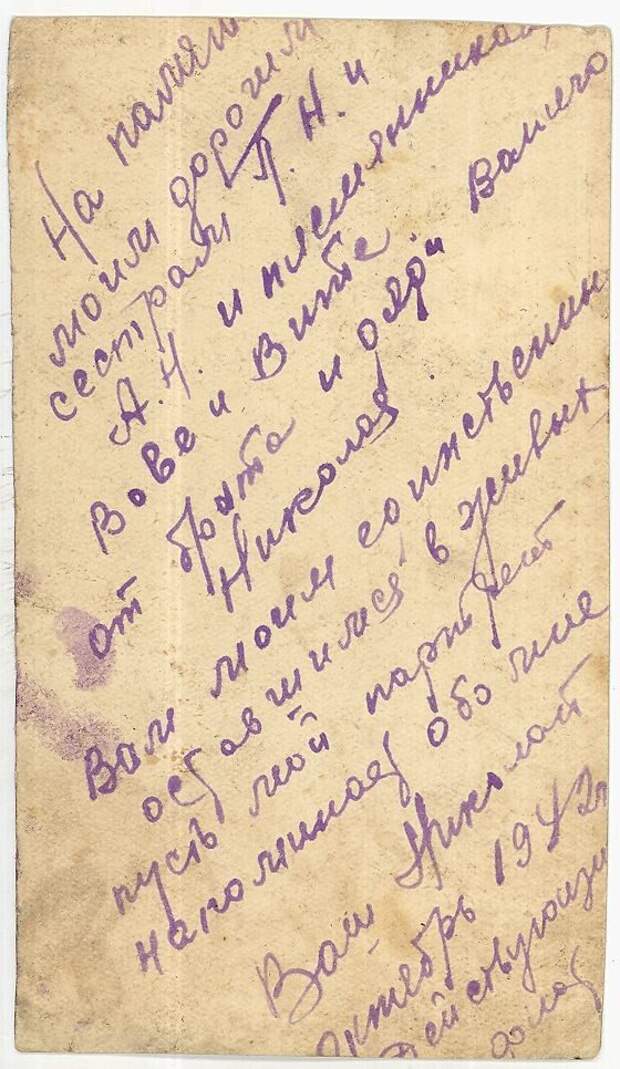 На памят
моим дорогим
сестрам П.Н. и
А.Н. и племянникам
Вове и Вите.
от брата и дяди Вашего
Николая.
Вам моим единственн
оставшимся в живых
пусть мой портрет
напоминает обо мне
Ваш Николай
Октябрь 1942г
Действующий
флот